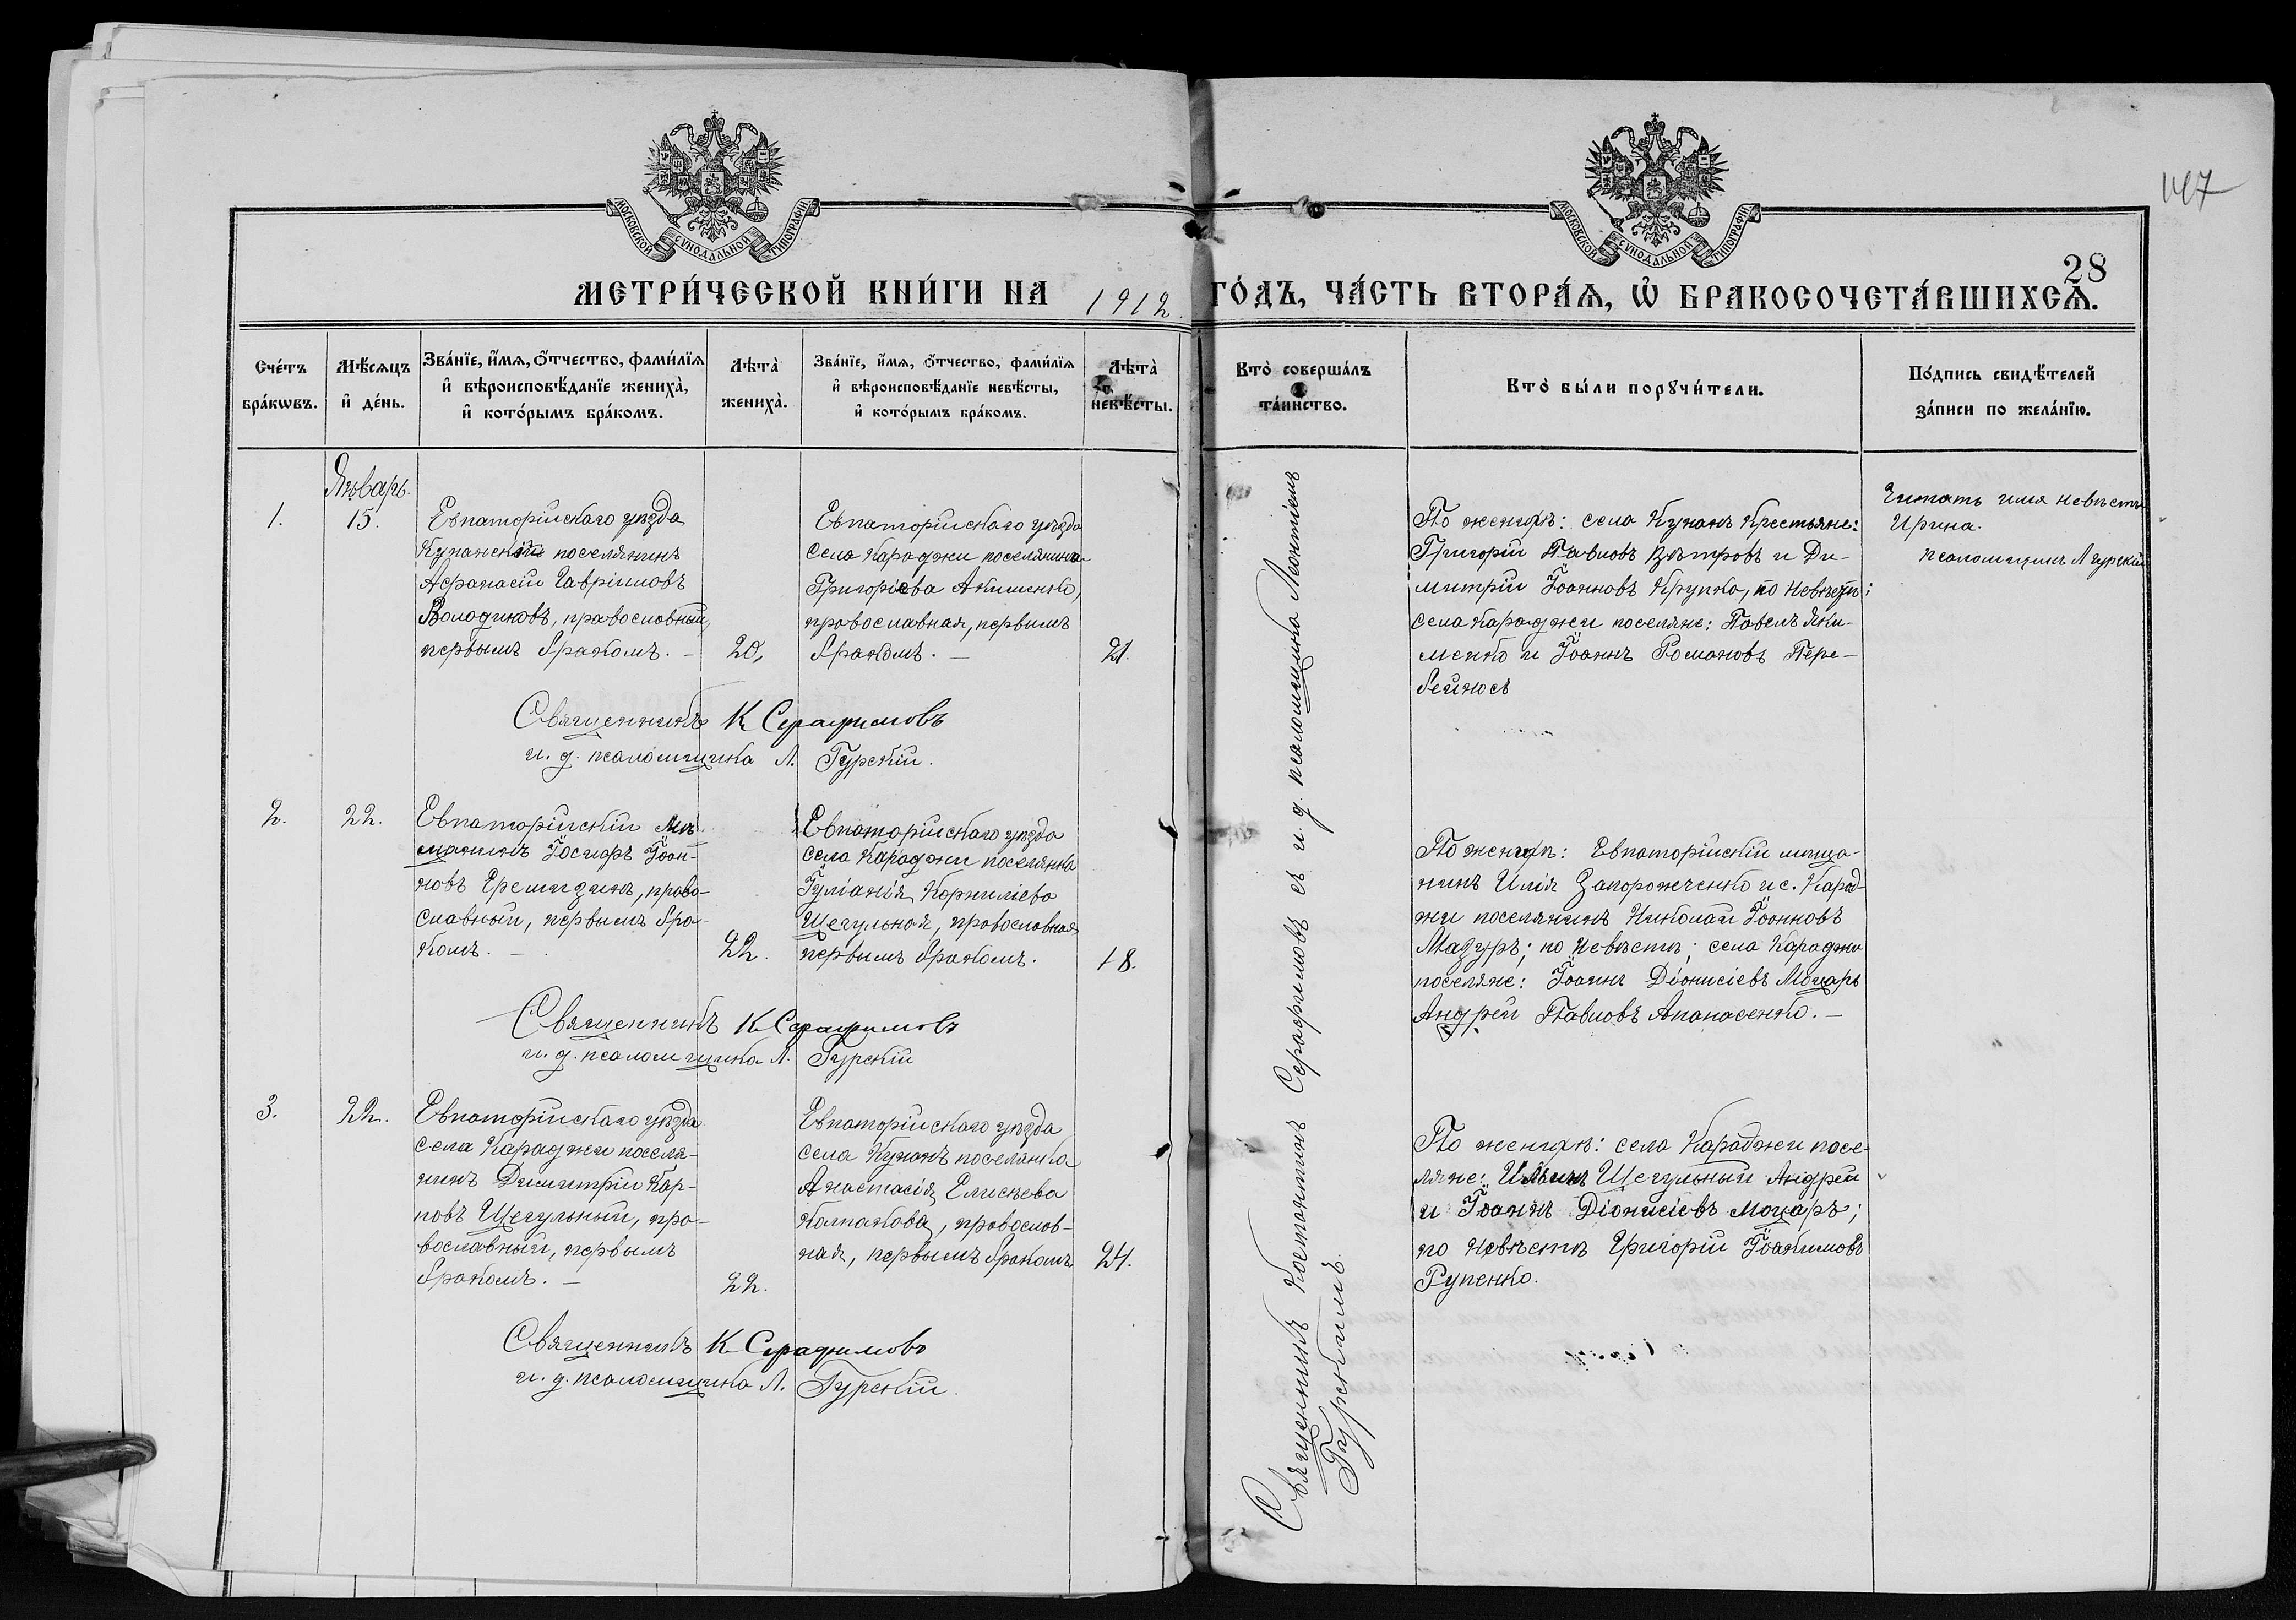 МОСКОВСКОЙ СУНОДАЛЬНОЙ ТИПОГРАФІИ
МОСКОВСКОЙ СУНОДАЛЬНОЙ ТИПОГРАФІИ
147
28
МЕТРИ́ЧЕСКОЙ КНИ́ГИ НА 1912 ГО́ДЪ, ЧА́СТЬ ВТОРА́Я, Ѡ҆ БРАКОСОЧЕТА́ВШИХСѦ.
Сче́тъ
бра́кѡвъ.
Мѣ́сѧцъ
и҆ де́нь.
Зва́нїе, и҆́мѧ, ѻ҆́тчество, фами́лїѧ
и҆ вѣроисповѣ́данїе женихà,
и҆ кото́рымъ бра́комъ.
Лѣтà
женихà.
Зва́нїе, и҆́мѧ, ѻ҆́тчество, фами́лїѧ
и҆ вѣроисповѣ́данїе невѣ́сты,
и҆ кото́рымъ бра́комъ.
Лѣтà
невѣ́сты.
Ктò совершáлъ
тáинство.
Ктò бы́ли порꙋчи́тели.
По́дпись свидѣ́телей
зáписи по желáнїю.
Январь.
1.
15.
Евпаторійскаго уѣзда
Кунанскій поселянинъ
Афанасій Гавріиловъ
Володиковъ, православный,
первымъ бракомъ. —
20.
Евпаторійскаго уѣзда
села Караджи поселянина
Григоріева Акименко,
православная, первымъ
бракомъ. —
21.
По женихѣ: села Кунанъ крестьяне:
Григорій Павловъ Вѣтровъ и Ди-
митрій Іоанновъ Крупко, по невѣстѣ:
села Караджи поселяне: Павелъ Яки-
менко и Іоаннъ Романовъ Пере-
бейносъ
Читать имя невѣсты
Ирина.
псаломщикъ Л Гурскій
Священникъ К Серафимовъ
и. д. псаломщика Л. Гурскій.
2.
22.
Евпаторійскій мѣ-
щанинъ Іоан-
новъ, право-
славный, первымъ бра-
комъ. —
22.
Евпаторійскаго уѣзда
села Караджи поселянка
Іуліанія Корниліева
Щегульная, православная
первымъ бракомъ.
18.
По женихѣ: Евпаторійскій мѣща-
нинъ Илія Запорожченко и с. Карад-
жи поселянинъ Николай Іоанновъ
Мазуръ; по невѣстѣ; села Караджи
поселяне: Іоаннъ Діонисіевъ Моцарь
Андрей Павловъ Апанасенко. —
Священникъ К Серафимовъ
и. д. псаломщика Л. Гурскій
3.
22.
Евпаторійскаго уѣзда
села Караджи поселя-
нинъ Димитрій Кар-
повъ Щегульный, пра-
вославный, первымъ
бракомъ. —
22.
Евпаторійскаго уѣзда
села Кунанъ поселянка
Анастасія Елисѣева
Колпакова, православ-
ная, первымъ бракомъ
24.
По женихѣ: села Караджи посе-
ляне: Щегульный Андрей
и Іоаннъ Діонисіевъ Моцаръ;
по невѣстѣ Григорій Іоакимовъ
Рупенко.
Священникъ К Серафимовъ
и. д. псаломщика Л. Гурскій.
Священникъ Константинъ Серафимовъ съ и. д. псаломщика Леонтіемъ
Гурскимъ.